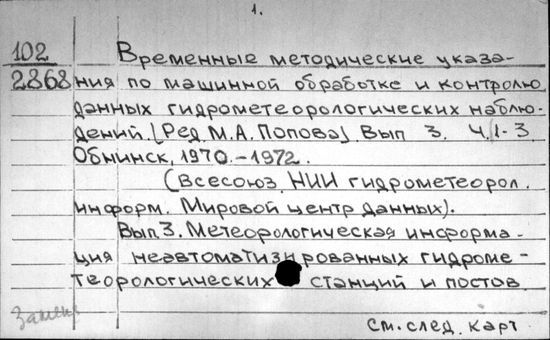 1.
102 Временные методические указа-
2868 ния по машинной обработке и контролю
данных гидрометеорологических наблю-
дений [Ред. М.А. Попова] Вып 3. Ч. 1-3
Обнинск, 1970.-1972.
(Всесоюз. НИИ гидрометеорол.
информ. Мировой центр данных).
Вып 3. Метеорологическая информа-
ция неавтоматизированных гидроме-
теорологических станций и постов
См. след. карт